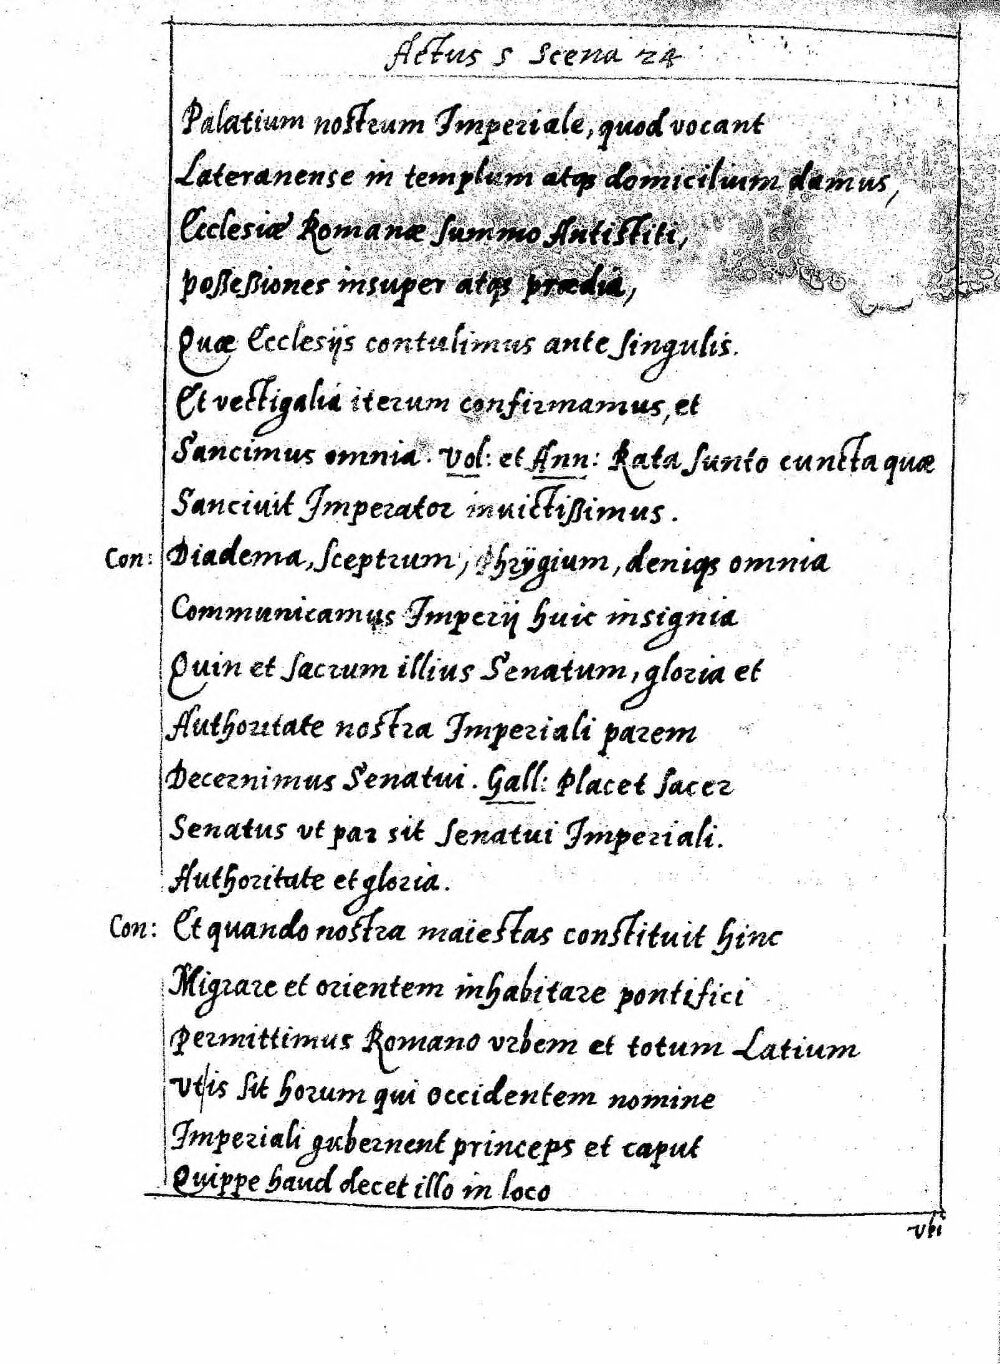 Actus 5 Scena 24
Palatium nostrum Imperiale, quod vocant
Lateranense in templum atqs domicilium damus,
Ecclesiæ Romanæ summo Antistiti,
poßeßiones insuper atqs prædia,
Quæ Ecclesijs contulimus ante singulis.
Et vectigalia iterum confirmamus, et
Sancimus omnia. Vol: et Ann: Rata sunto cuncta quæ
Sanciuit Imperator inuictißimus.
Con: Diadema, sceptrum, Phrygium, deniqs omnia
Communicamus Imperij huic insignia
Quin et sacrum illius Senatum, gloria et
Authoritate nostra Imperiali parem
Decernimus Senatui. Gall: Placet sacer
Senatus vt par sit senatui Imperiali.
Authoritate et gloria.
Con: Et quando nostra maiestas constituit hinc
Migrare et orientem inhabitare pontifici
Permittimus Romano vrbem et totum Latium
Vt is sit horum qui occidentem nomine
Imperiali gubernent princeps et caput
Quippe haud decet illo in loco
Vbi